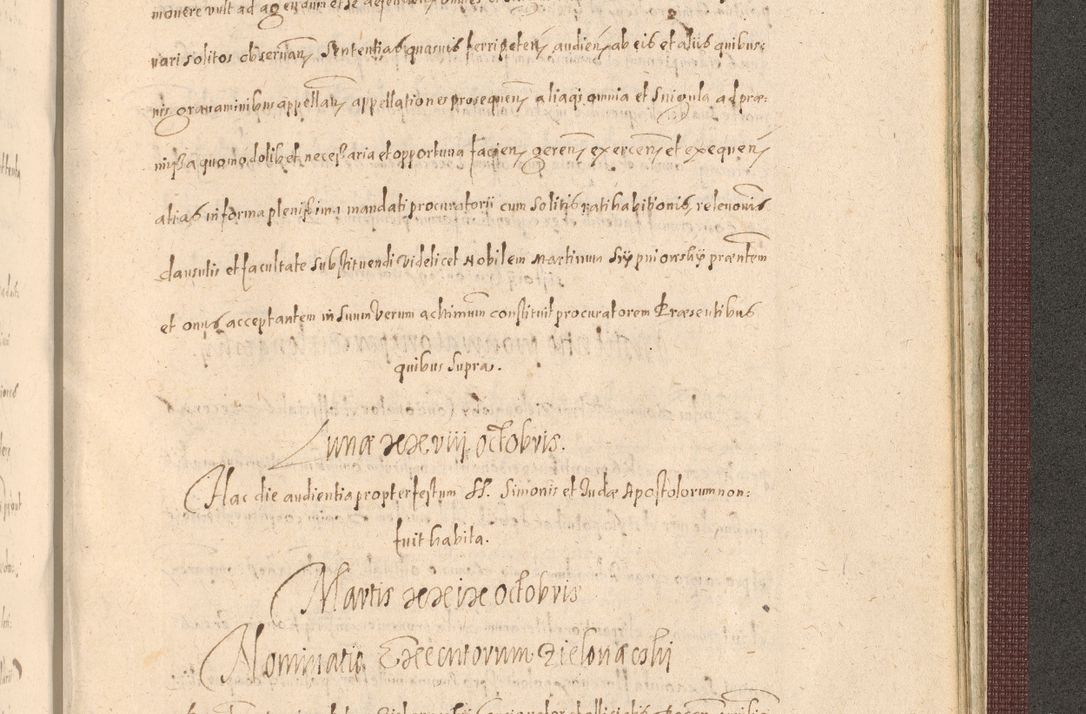 monere vult ad agendum et se defendendum omnes
vari solitos observan Sententias quasuis ferri peten audien ab eis et aliis quibus:
nis gravaminibus appellan appellationes prosequen aliaq omnia et singula ad præ:
missa quomodolibet necessaria et opportuna facien geren exercen et exequen
alias in forma plenissima mandati procuratorii cum solitis ratihabitionis, relevonis
clausulis et facultate substituendi videlicet Nobilem Martinum præntem
et onus acceptantem in suum verum ac ltimum constituit procuratorem Præsentibus
quibus supra.
Lunæ xxviij octobris.
Hac die audientia propter festum SS. Simonis et Judæ Apostolorum non:
fuit habita.
Martis xxix octobris
Nominatio Executorum Zielonaczki